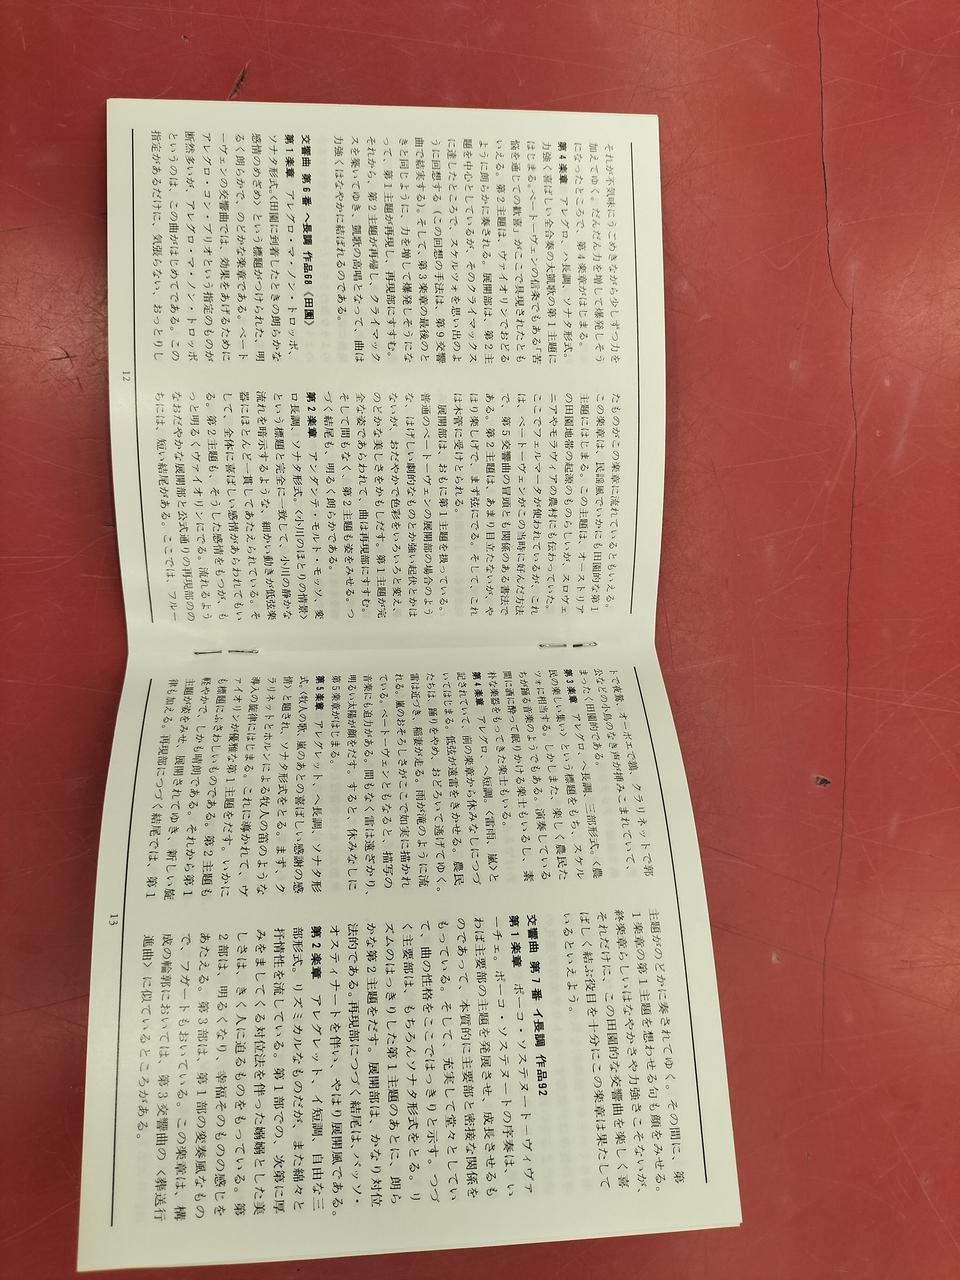 それが不気味にうごめきながら少しずつ力を
加えてゆく。だんだん力を増して爆発しそう
になったところで、第4楽章がはじまる。
第4楽章　アレグロ、ハ長調、ソナタ形式。
力強く喜ばしい全合奏の大凱歌の第1主題に
はじまる。ベートーヴェンの信条でもある「苦
悩を通じての歓喜」がここで具現されたとも
いえる。第2主題は、ヴァイオリンでおどる
ように朗らかに奏される。展開部は、第2主
題を中心としているが、そのクライマックス
に達したところで、スケルツォを思い出のよ
うに回想する（この回想の手法は、第9交響
曲で結実する)。そして、第3楽章の最後のと
きと同じように、力を増して爆発しそうにな
って、第1主題が再現し、再現部にすすむ。
それから、第2主題が再帰し、クライマック
スを築いてゆき、凱歌の高唱となって、曲は
力強くはなやかに結ばれるのである。
交響曲 第6番 ヘ長調 作品68〈田園〉
第1楽章　アレグロ・マ・ノン・トロッポ、
ソナタ形式。〈田園に到着したときの朗らかな
感情のめざめ〉という標題がつけられた、明
るく朗らかで、のどかな楽章である。ベート
ーヴェンの交響曲では、効果をあげるために
アレグロ・コン・ブリオという指定のものが
断然多いが、アレグロ・マ・ノン・トロッポ
というのは、この曲がはじめてである。この
指定があるだけに、気張らない、おっとりし
たものがこの楽章に流れているともいえる。
この楽章は、民謡風でいかにも田園的な第1
主題にはじまる。この主題は、オーストリア
の田園地帯の起源のものらしいが、スロヴェ
ニアやモラヴィアの農村にも伝わっていた。
ここでフェルマータが使われているが、これ
は、ベートーヴェンがこの当時に好んだ方法
で、第5交響曲の冒頭とも関係のある書法で
ある。第2主題は、あまり目立たないが、や
はり楽しげで、まず弦にでる。そして、これ
は木管に受けとられる。
展開部は、おもに第1主題を扱っている。
普通のベートーヴェンの展開部の場合のよう
な、はげしい劇的なものとか強い起伏とかは
ないが、おだやかで色彩をいろいろと変え、
のどかな美しさをかもしだす。第1主題が完
全な姿であらわれて、曲は再現部にすすむ。
そして間もなく、第2主題も姿をみせる。つ
づく結尾も、明るく朗らかである。
第2楽章　アンダンテ・モルト・モッソ、変
ロ長調、ソナタ形式。〈小川のほとりの情景〉
という標題と完全に一致して、小川の静かな
流れを暗示するような、細かい動きが低弦楽
器にほとんど一貫してあたえられている。そ
して、全体に喜ばしい感情があらわれてもい
る。第2主題も、そうした感情をもつが、も
っと明るくヴァイオリンにでる。流れるよう
なおだやかな展開部と公式通りの再現部のの
ちには、短い結尾がある。ここでは、フルー
12
トで夜鶯、オーボエで鶉、クラリネットで郭
公などの小鳥のなき声が挿みこまれていて、
まったく田園的である。
第3楽章　アレグロ、ヘ長調、三部形式。〈農
民の楽しい集い〉という標題をもち、スケル
ツォに相当する。しかしまた、楽しく農民た
ちが踊る音楽のようでもある。演奏している
間に酒に酔って眠りかける楽士もいるし、素
朴な楽器をもってきた楽士もいる。
第4楽章　アレグロ、ヘ短調。〈雷雨、嵐〉と
記されていて、前の楽章から休みなしにつづ
いてはじまる。低弦が遠雷をきかせる。農民
たちは、踊りをやめ、おどろいて逃げてゆく。
雷は近づき、稲妻が走る。雨が滝のように流
れる。嵐のおそろしさがここで如実に描かれ
ている。ベートーヴェンともなると、描写の
音楽にも迫力がある。間もなく雷は遠ざかり、
明るい太陽が顔をだす。すると、休みなしに
第5楽章がはじまる。
第5楽章　アレグレット、ヘ長調、ソナタ形
式。〈牧人の歌、嵐のあとの喜ばしい感謝の感
情〉と題され、ソナタ形式をとる。まず、ク
ラリネットとホルンによる牧人の笛のような
導入の旋律にはじまる。これに導かれて、ヴ
ァイオリンが優雅な第1主題をだす。いかに
も標題にふさわしいものである。第2主題も
軽やかで、しかも晴朗である。それから第1
主題が姿をみせ、展開されてゆき、新しい旋
律も加わる。再現部につづく結尾では、第1
主題がのどかに奏されてゆく。その間に、第
1楽章の第1主題を想わせる句も顔をみせる。
終楽章らしいはなやかさや力強さこそないが、
それだけに、この田園的な交響曲を楽しく喜
ばしく結ぶ役目を十分にこの楽章は果たして
いるといえよう。
交響曲 第7番 イ長調 作品92
第1楽章　ポーコ・ソステヌート―ヴィヴァ
ーチェ。ポーコ・ソステヌートの序奏は、い
わば主要部の主題を発展させ、成長させるも
のであって、本質的に主要部と密接な関係を
もっている。そして、充実して堂々としてい
て、曲の性格をここではっきりと示す。つづ
く主要部は、もちろんソナタ形式をとる。リ
ズムのはっきりした第1主題のあとに、朗ら
かな第2主題をだす。展開部は、かなり対位
法的である。再現部につづく結尾は、バッソ・
オスティナートを伴い、やはり展開風である。
第2楽章　アレグレット、イ短調、自由な三
部形式。リズミカルなものだが、また綿々と
抒情性を流している。第1部での、次第に厚
みをましてくる対位法を伴った嫋嫋とした美
しさは、きく人に迫るものをもっている。第
2部は、明るくなり、幸福そのものの感じを
あたえる。第3部は、第1部の変奏風なもの
で、フガートもおいている。この楽章は、構
成の輪郭においては、第3交響曲の〈葬送行
進曲〉に似ているところがある。
13